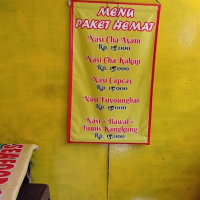 MENU
PAKET HEMAT
Nasi Cha Ayam
Rp. 15.000
Nasi Cha Kakap
Rp. 15.000
Nasi Capcay
Rp. 15.000
Nasi Fuyounghai
Rp. 15.000
Nasi - Bawal -
Tumis Kangkung
Rp. 15.000